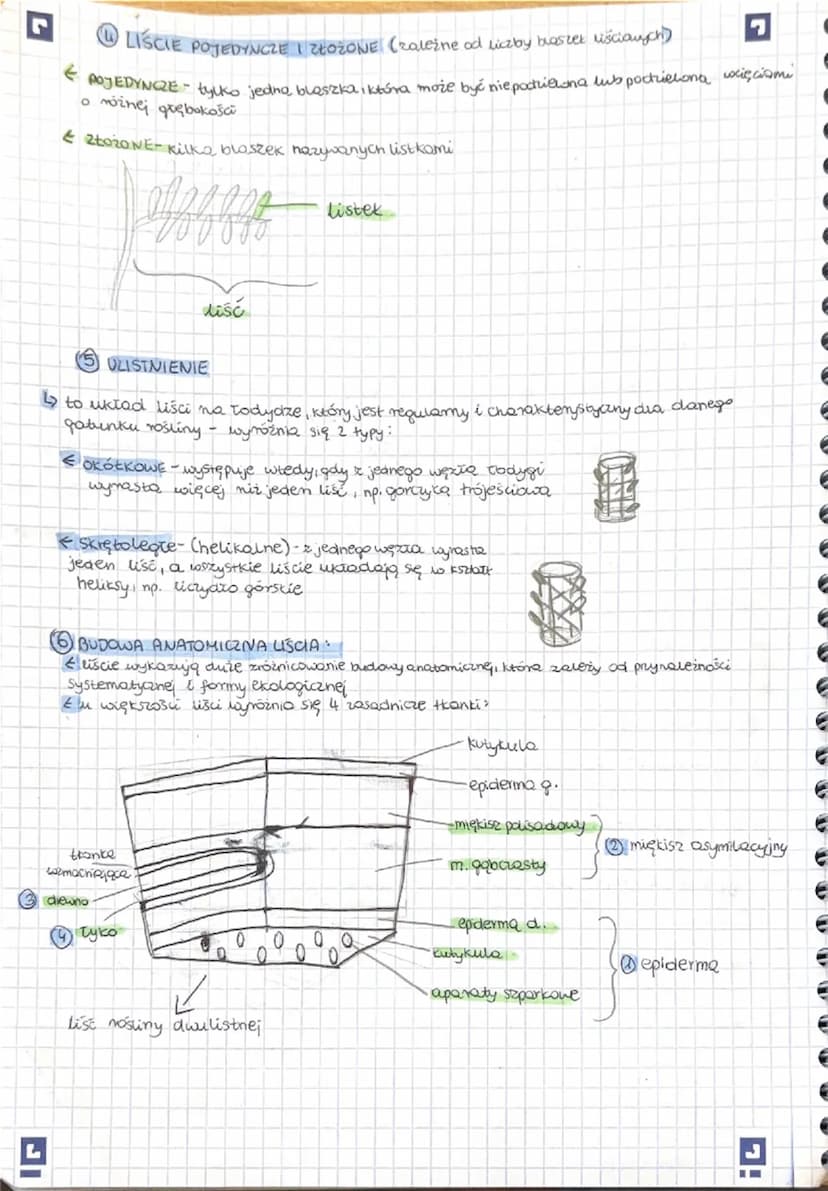 ④ LIŚCIE POJEDYNCZE I ZŁOŻONE (zależne od liczby blaszek liściowych)
← POJEDYNCZE - tylko jedna blaszka, która może być niepodzielona lub podzielona wcięciami
o różnej głębokości
← ZŁOŻONE - kilka blaszek nazywanych listkami
listek
liść
⑤ ULISTNIENIE
↳ to układ liści na łodydze, który jest regularny i charakterystyczny dla danego
gatunku rośliny - wyróżnia się 2 typy:
← OKÓŁKOWE - występuje wtedy, gdy z jednego węzła łodygi
wyrasta więcej niż jeden liść, np. gorzyka trójeściowa
← Skrętoległe - (helikalne) - z jednego węzła wyrasta
jeden liść, a wszystkie liście układają się w kształt
heliksy, np. liczydło górskie
⑥ BUDOWA ANATOMICZNA LIŚCIA:
← liście wykazują duże zróżnicowanie budowy anatomicznej, która zależy od przynależności
systematycznej i formy ekologicznej
← u większości liści wyróżnia się 4 zasadnicze tkanki:
kutykula
epiderma g.
miękisz palisadowy
② miękisz asymilacyjny
m. gąbczasty
tkanka
wzmacniająca
③ drewno
④ łyko
epiderma d.
kutykula
① epiderma
aparaty szparkowe
liść rośliny dwulistnej